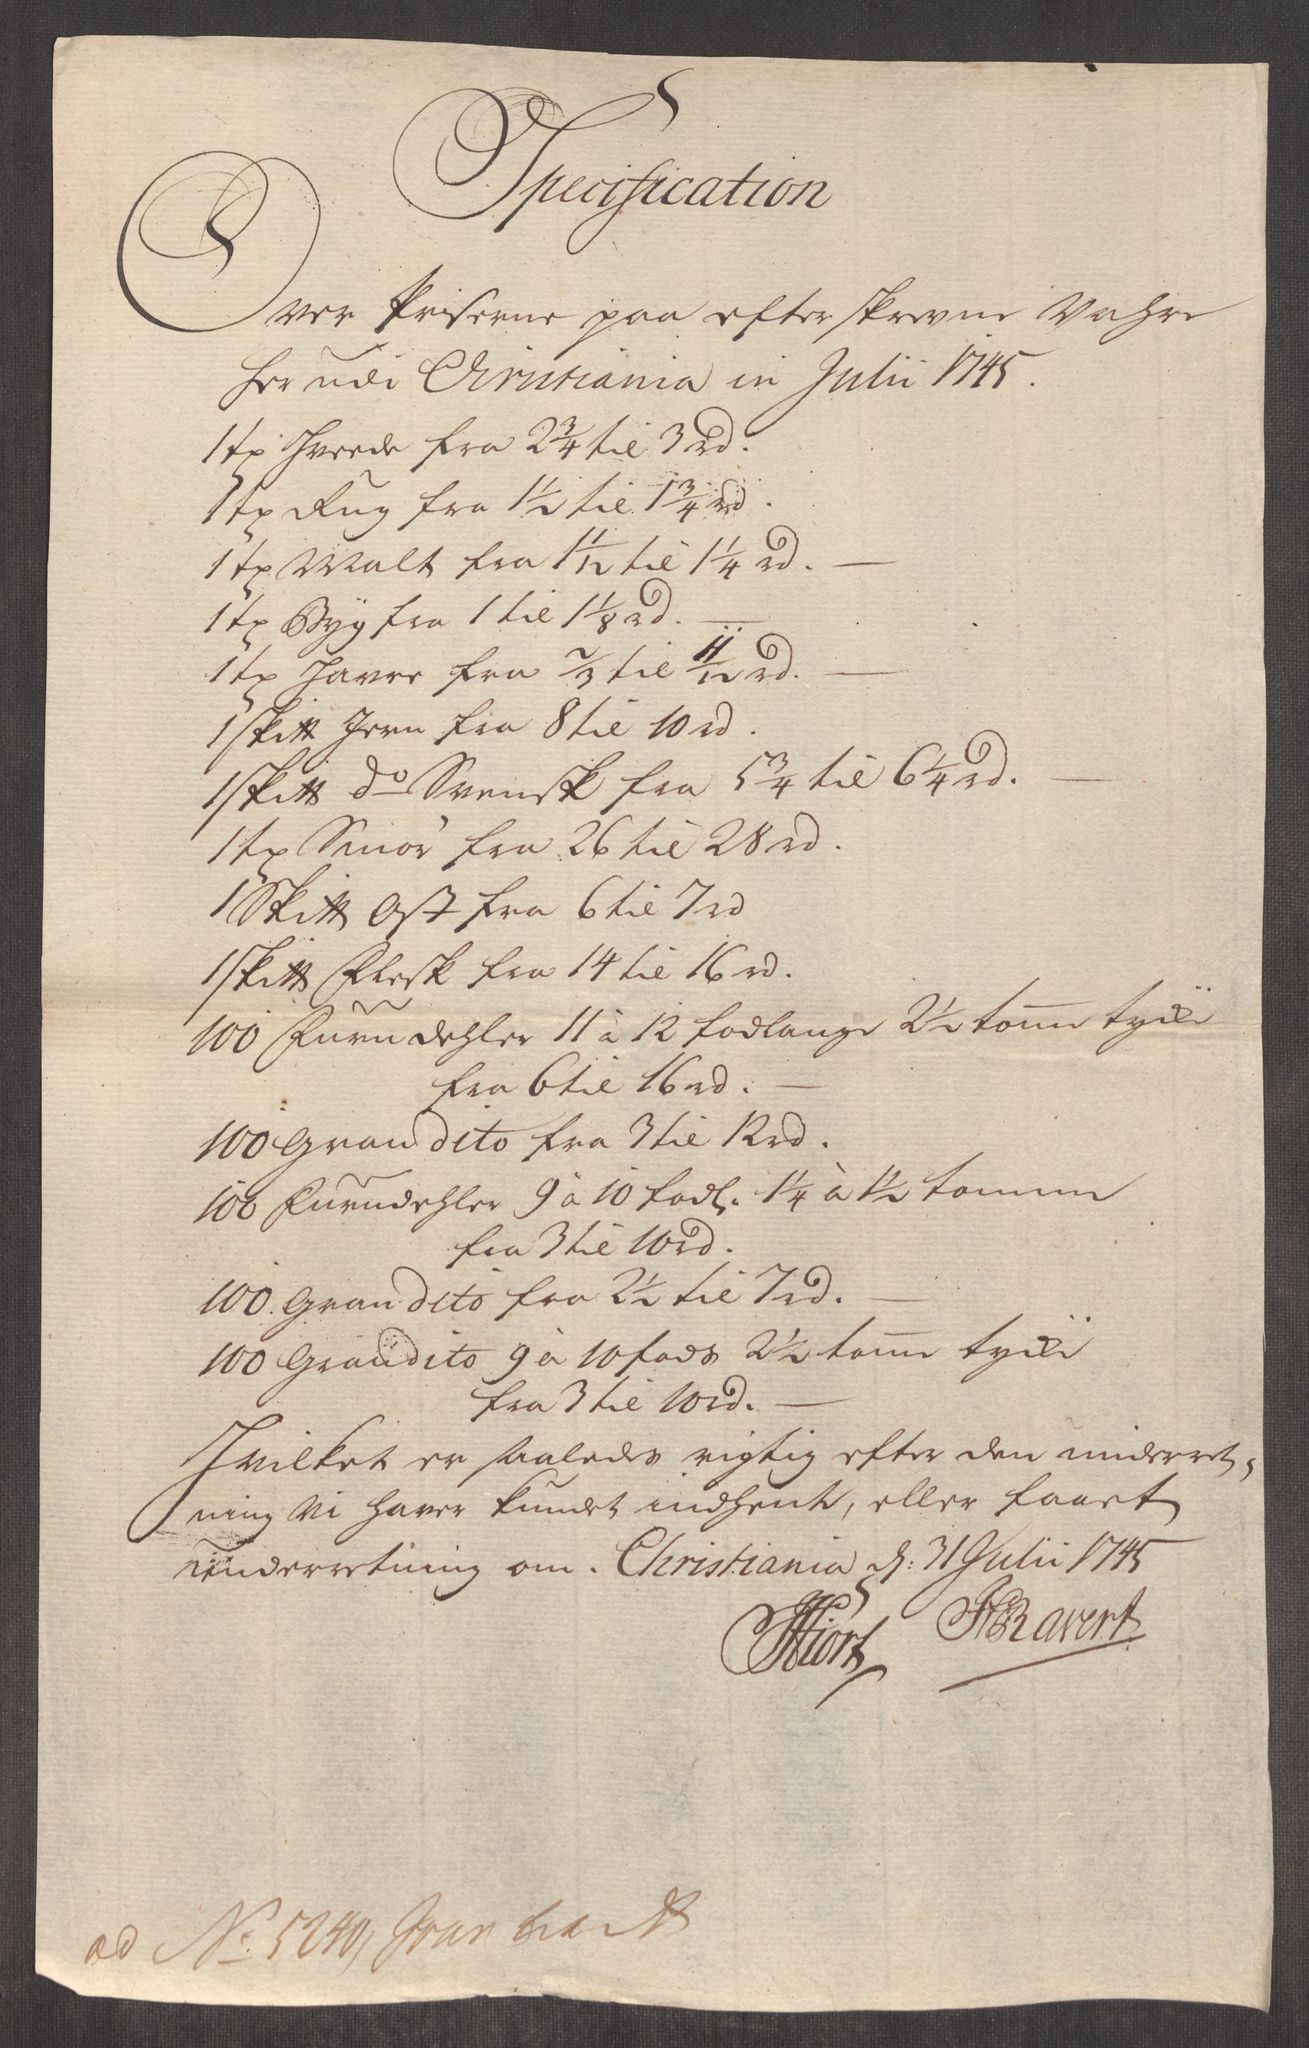 Specification
Over Priserne paa efterskrevne Vahre
her udi Christiania in Julii 1745.
1 tø Hvede fra 2 3/4 til 3 rd.
1 tø Rug fra 1 1/2 til 1 3/4 rd.
1 tø Malt fra 1 1/12 til 1 1/4 rd. —
1 tø Byg fra 1 til 1 1/8 rd. —
1 tø Havre fra 2/3 til 11/12 rd. —
1 skitt Jern fra 8 til 10 rd.
1 skitt do Svensk fra 5 3/4 til 6 1/4 rd. —
1 tø Smör fra 26 til 28 rd.
1 Skitt Ost fra 6 til 7 rd
1 skitt Flesk fra 14 til 16 rd.
100 Furudehler 11 à 12 fodlange 2 1/2 tomme tyche
fra 6 til 16 rd. —
100 Gran dito fra 3 til 12 rd.
100 Furudehler 9 à 10 fodl. 1 1/4 à 1 1/2 tomme
fra 3 til 10 rd.
100 Gran dito fra 2 1/2 til 7 rd. —
100 Gran dito 9 à 10 fods 2 1/2 tomme tyche
fra 3 til 10 rd. —
Hvilket er saaledes rigtig efter den underret-
ning vi haver kundet indhente, eller faaet
underretning om. Christiania d: 31 Julii 1745
Hiort HRavert
ad No. 5240,